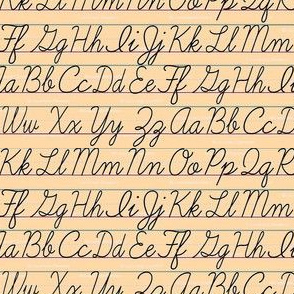 Kk Ll Mm Nn Oo Pp Qq R
Ff Gg Hh Ii Jj Kk Ll M
Aa Bb Cc Dd Ee Ff Gg
Ww Xx Yy Zz Aa Bb Cc
Kk Ll Mm Nn Oo Pp Qq R
Ff Gg Hh Ii Jj Kk Ll M
Aa Bb Cc Dd Ee Ff Gg
Ww Xx Yy Zz Aa Bb Cc
Kk Ll Mm Nn Oo Pp Qq R